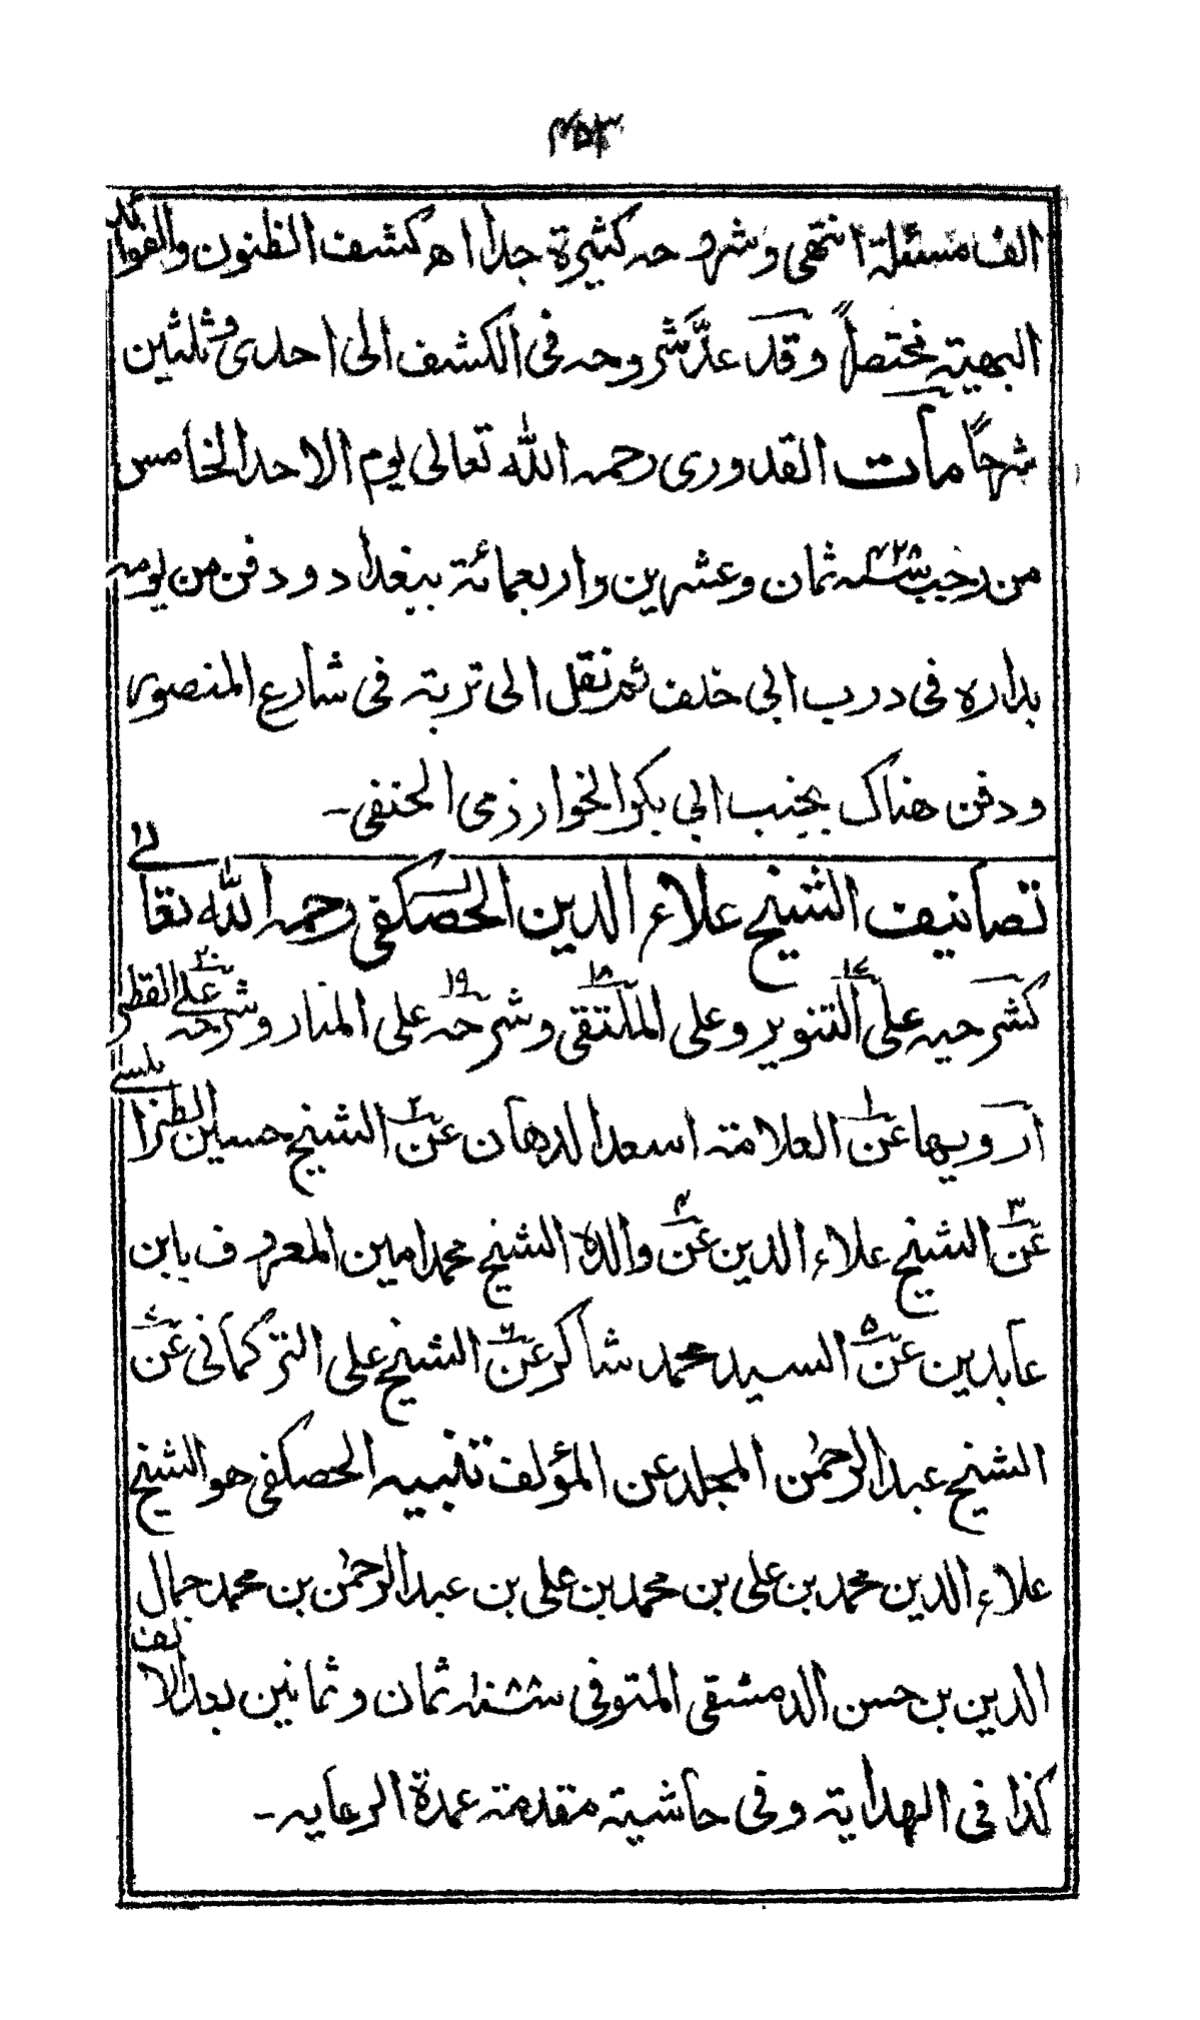 ۴۵۳
الف مسئلة انتهى وشروحه كثيرة جدا اه كشف الظنون والفوائد
البهيتہ مختصراً وقد عدَّ شروحه فى الكشف الى احدى وثلثين
شرحًا مات القدورى رحمہ اللّٰہ تعالى يوم الاحد الخامس
من رجب سنہ ۴۲۸ ثمان وعشرين واربعمائة ببغداد ودفن من يومہ
بداره فى درب ابى خلف ثم نقل الى تربتہ فى شارع المنصور
ودفن هناك بجنب ابى بكر الخوارزمى الحنفى۔
تصانيف الشيخ علاء الدين الحصكفى رحمہ اللّٰہ تعالے
كشرحيہ علىٰ ۱۷ التنوير وعلى ۱۸ الملتقى وشرحہ ۱۹ على المنار وشرحہ ۲۰ علے القطر
ارويها عن ۱ العلامتہ اسعد الدهان عن ۲ الشيخ حسين الطرابلسے
عن ۳ الشيخ علاء الدين عن ۴ والده الشيخ محمد امين المعروف بابن
عابدين عن ۵ السيد محمد شاكر عن ۶ الشيخ على التركمانى عن ۷
الشيخ عبد الرحمٰن المجلد عن المؤلف تنبيہ الحصكفى هو الشيخ
علاء الدين محمد بن على بن محمد بن على بن عبد الرحمٰن بن محمد جمال
الدين بن حسن الدمشقى المتوفى سنہ ۸۸ ثمان وثمانين بعد الالف
كذا فى الهدايتہ وفى حاشيتہ مقدمتہ عمدة الرعايہ۔